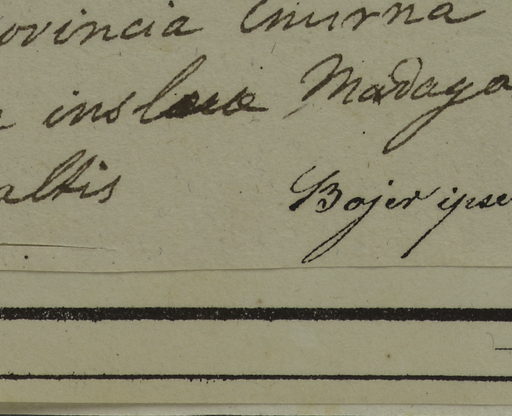 ovincia Emirna
insl Madaga
altis Bojer ipse